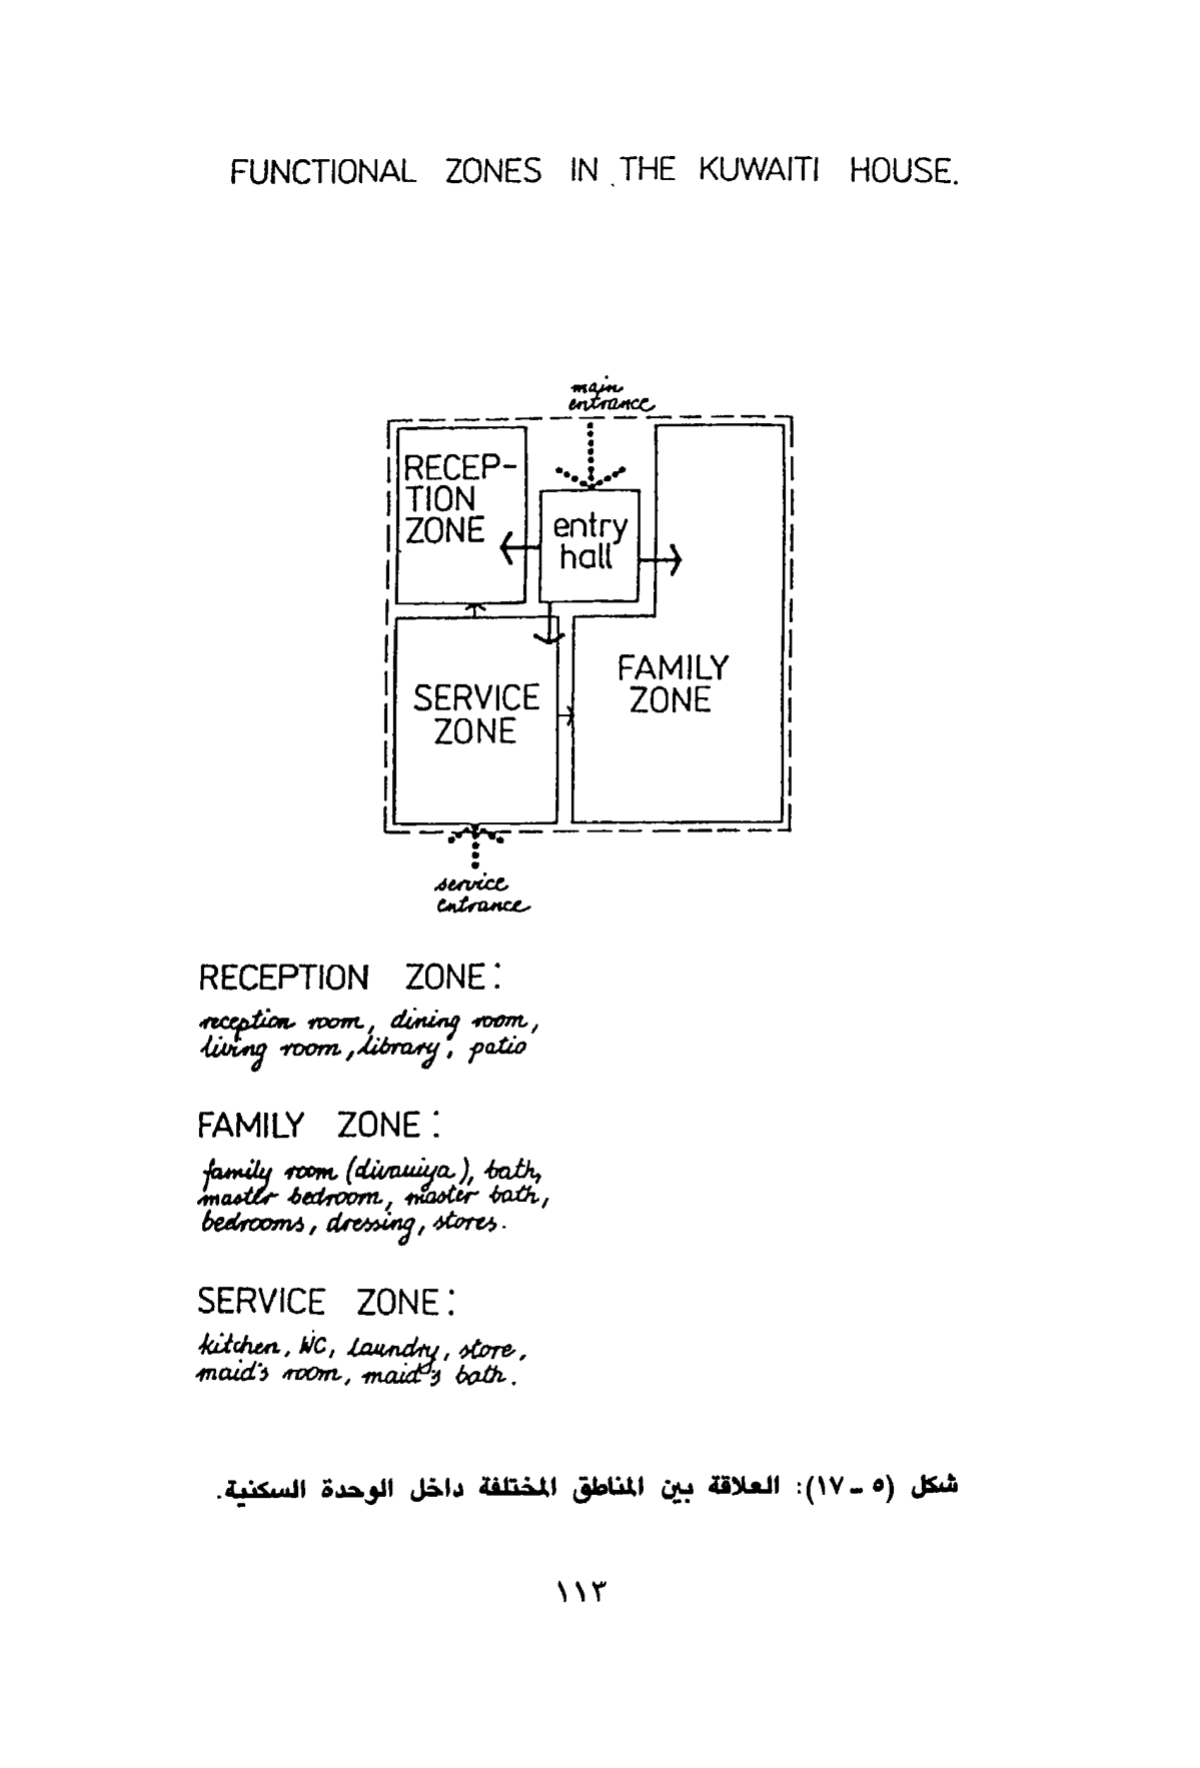 FUNCTIONAL ZONES IN THE KUWAITI HOUSE.
main
entrance
RECEP-
TION
ZONE
entry
hall
FAMILY
ZONE
SERVICE
ZONE
service
entrance
RECEPTION ZONE:
reception room, dining room,
living room, library, patio
FAMILY ZONE:
family room (divaniya), bath,
master bedroom, master bath,
bedrooms, dressing, stores.
SERVICE ZONE:
kitchen, WC, laundry, store,
maid's room, maid's bath.
شكل (٥ - ١٧): العلاقة بين المناطق المختلفة داخل الوحدة السكنية.
١١٣